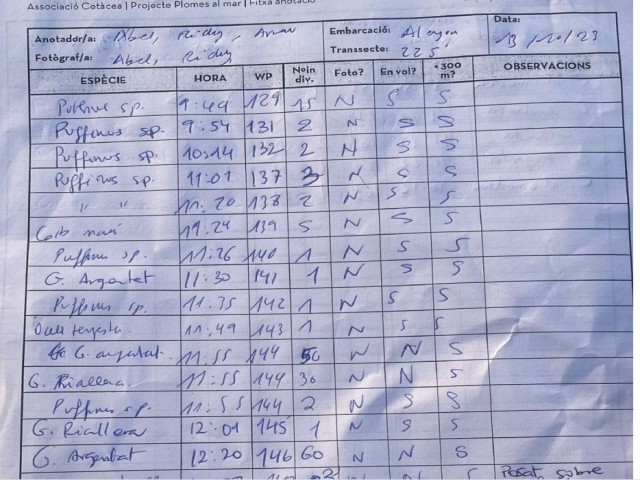 Associació Cetàcea | Projecte Plomes al mar | Fitxa anotació
Anotador/a: Abel, Ricky, Arnau
Embarcació: Alcyon
Data:
Fotògraf/a: Abel, Ricky
Transsecte: 225
13/10/23
ESPÈCIE HORA WP Noin div. Foto? En vol? <300 m? OBSERVACIONS
Puffinus sp. 9:49 129 15 N S S
Puffinus sp. 9:54 131 2 N S S
Puffinus sp. 10:14 132 2 N S S
Puffinus sp. 11:01 137 3 N S S
" " 11:20 138 2 N S S
Corb marí 11:24 139 5 N S S
Puffinus sp. 11:26 140 1 N S S
G. Argentat 11:30 141 1 N S S
Puffinus sp. 11:35 142 1 N S S
Ocell terrestre 11:49 143 1 N S S
G. argentat. 11:55 144 50 N N S
G. Riallera 11:55 144 30 N N S
Puffinus sp. 11:55 144 2 N S S
G. Riallera 12:01 145 1 N S S
G. Argentat 12:20 146 60 N N S
Posat sobre